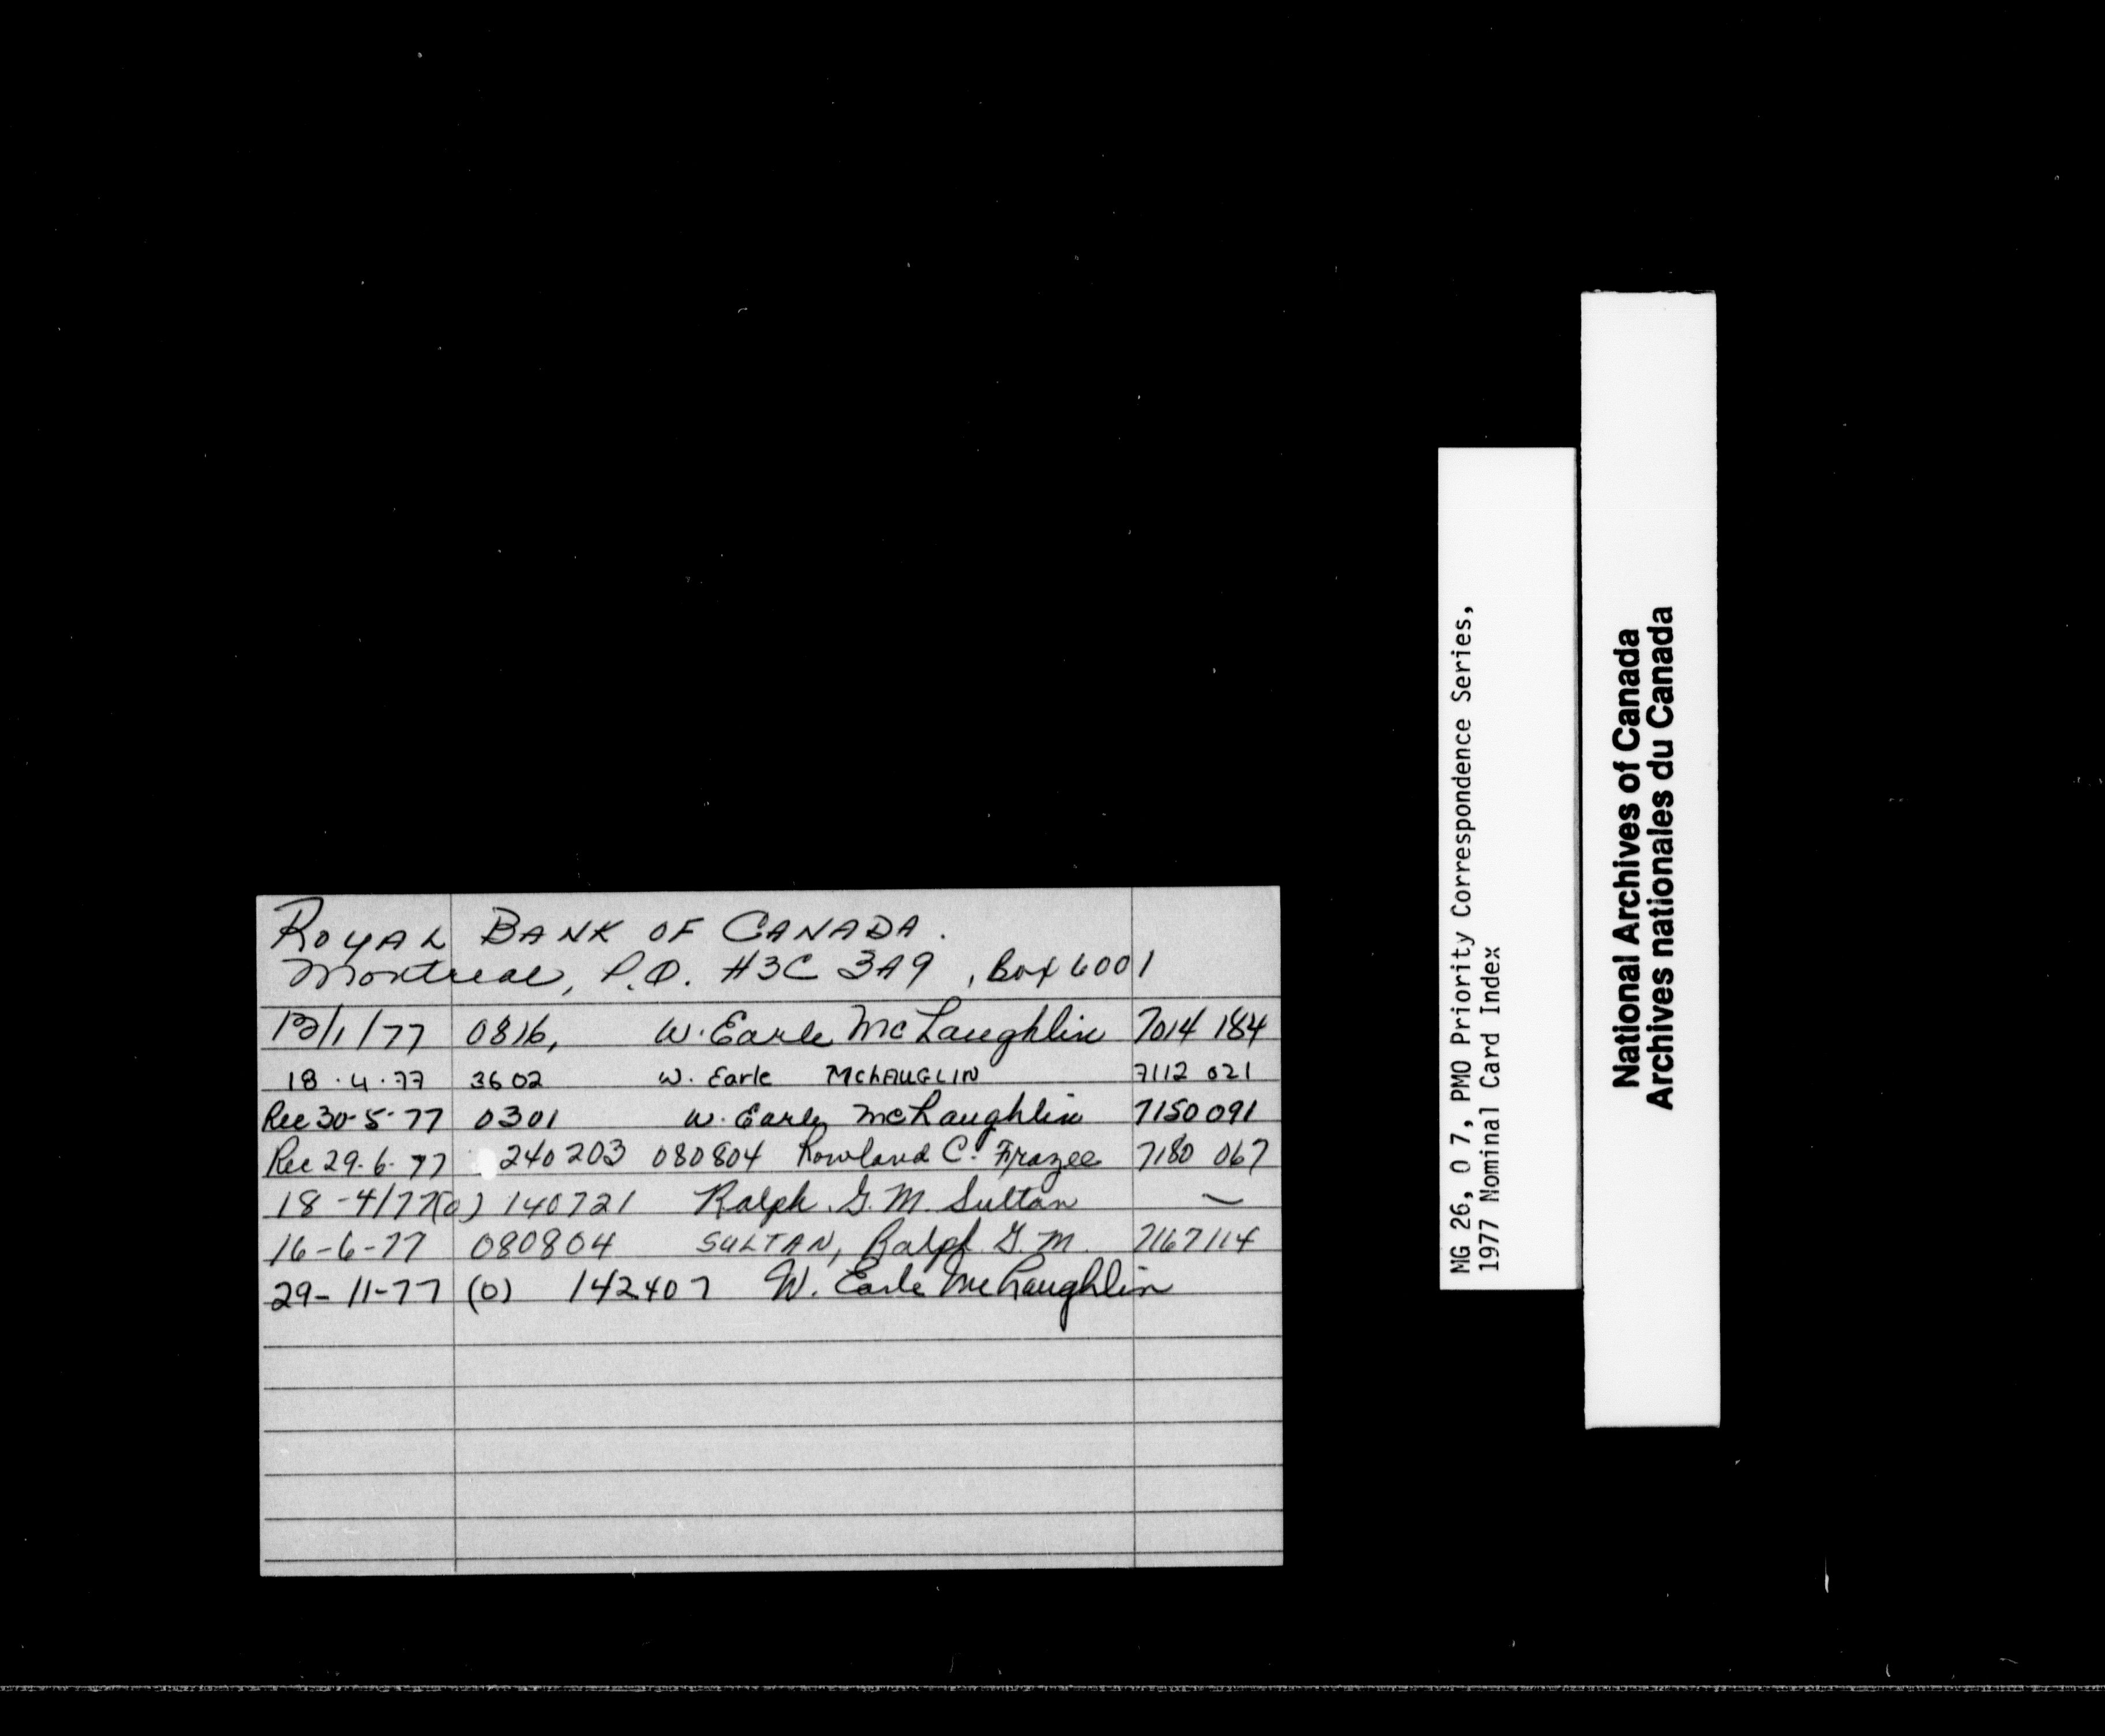 ROYAL BANK OF CANADA.
Montreal, P.Q. H3C 3A9, Box 6001
13/1/77 0816, W. Earle McLaughlin 7014 184
18.4.77 3602 W. Earle McLAUGLIN 7112 021
Rec 30-5-77 0301 W. Earle McLaughlin 7150 091
Rec 29.6.77 240203 080804 Rowland C. Frazee 7180 067
18-4/77(0) 140721 Ralph. G. M. Sultan —
16-6-77 080804 SULTAN, Ralph G. M. 7167114
29-11-77 (0) 142407 W. Earle McLaughlin
MG 26, O 7, PMO Priority Correspondence Series,
1977 Nominal Card Index
National Archives of Canada
Archives nationales du Canada